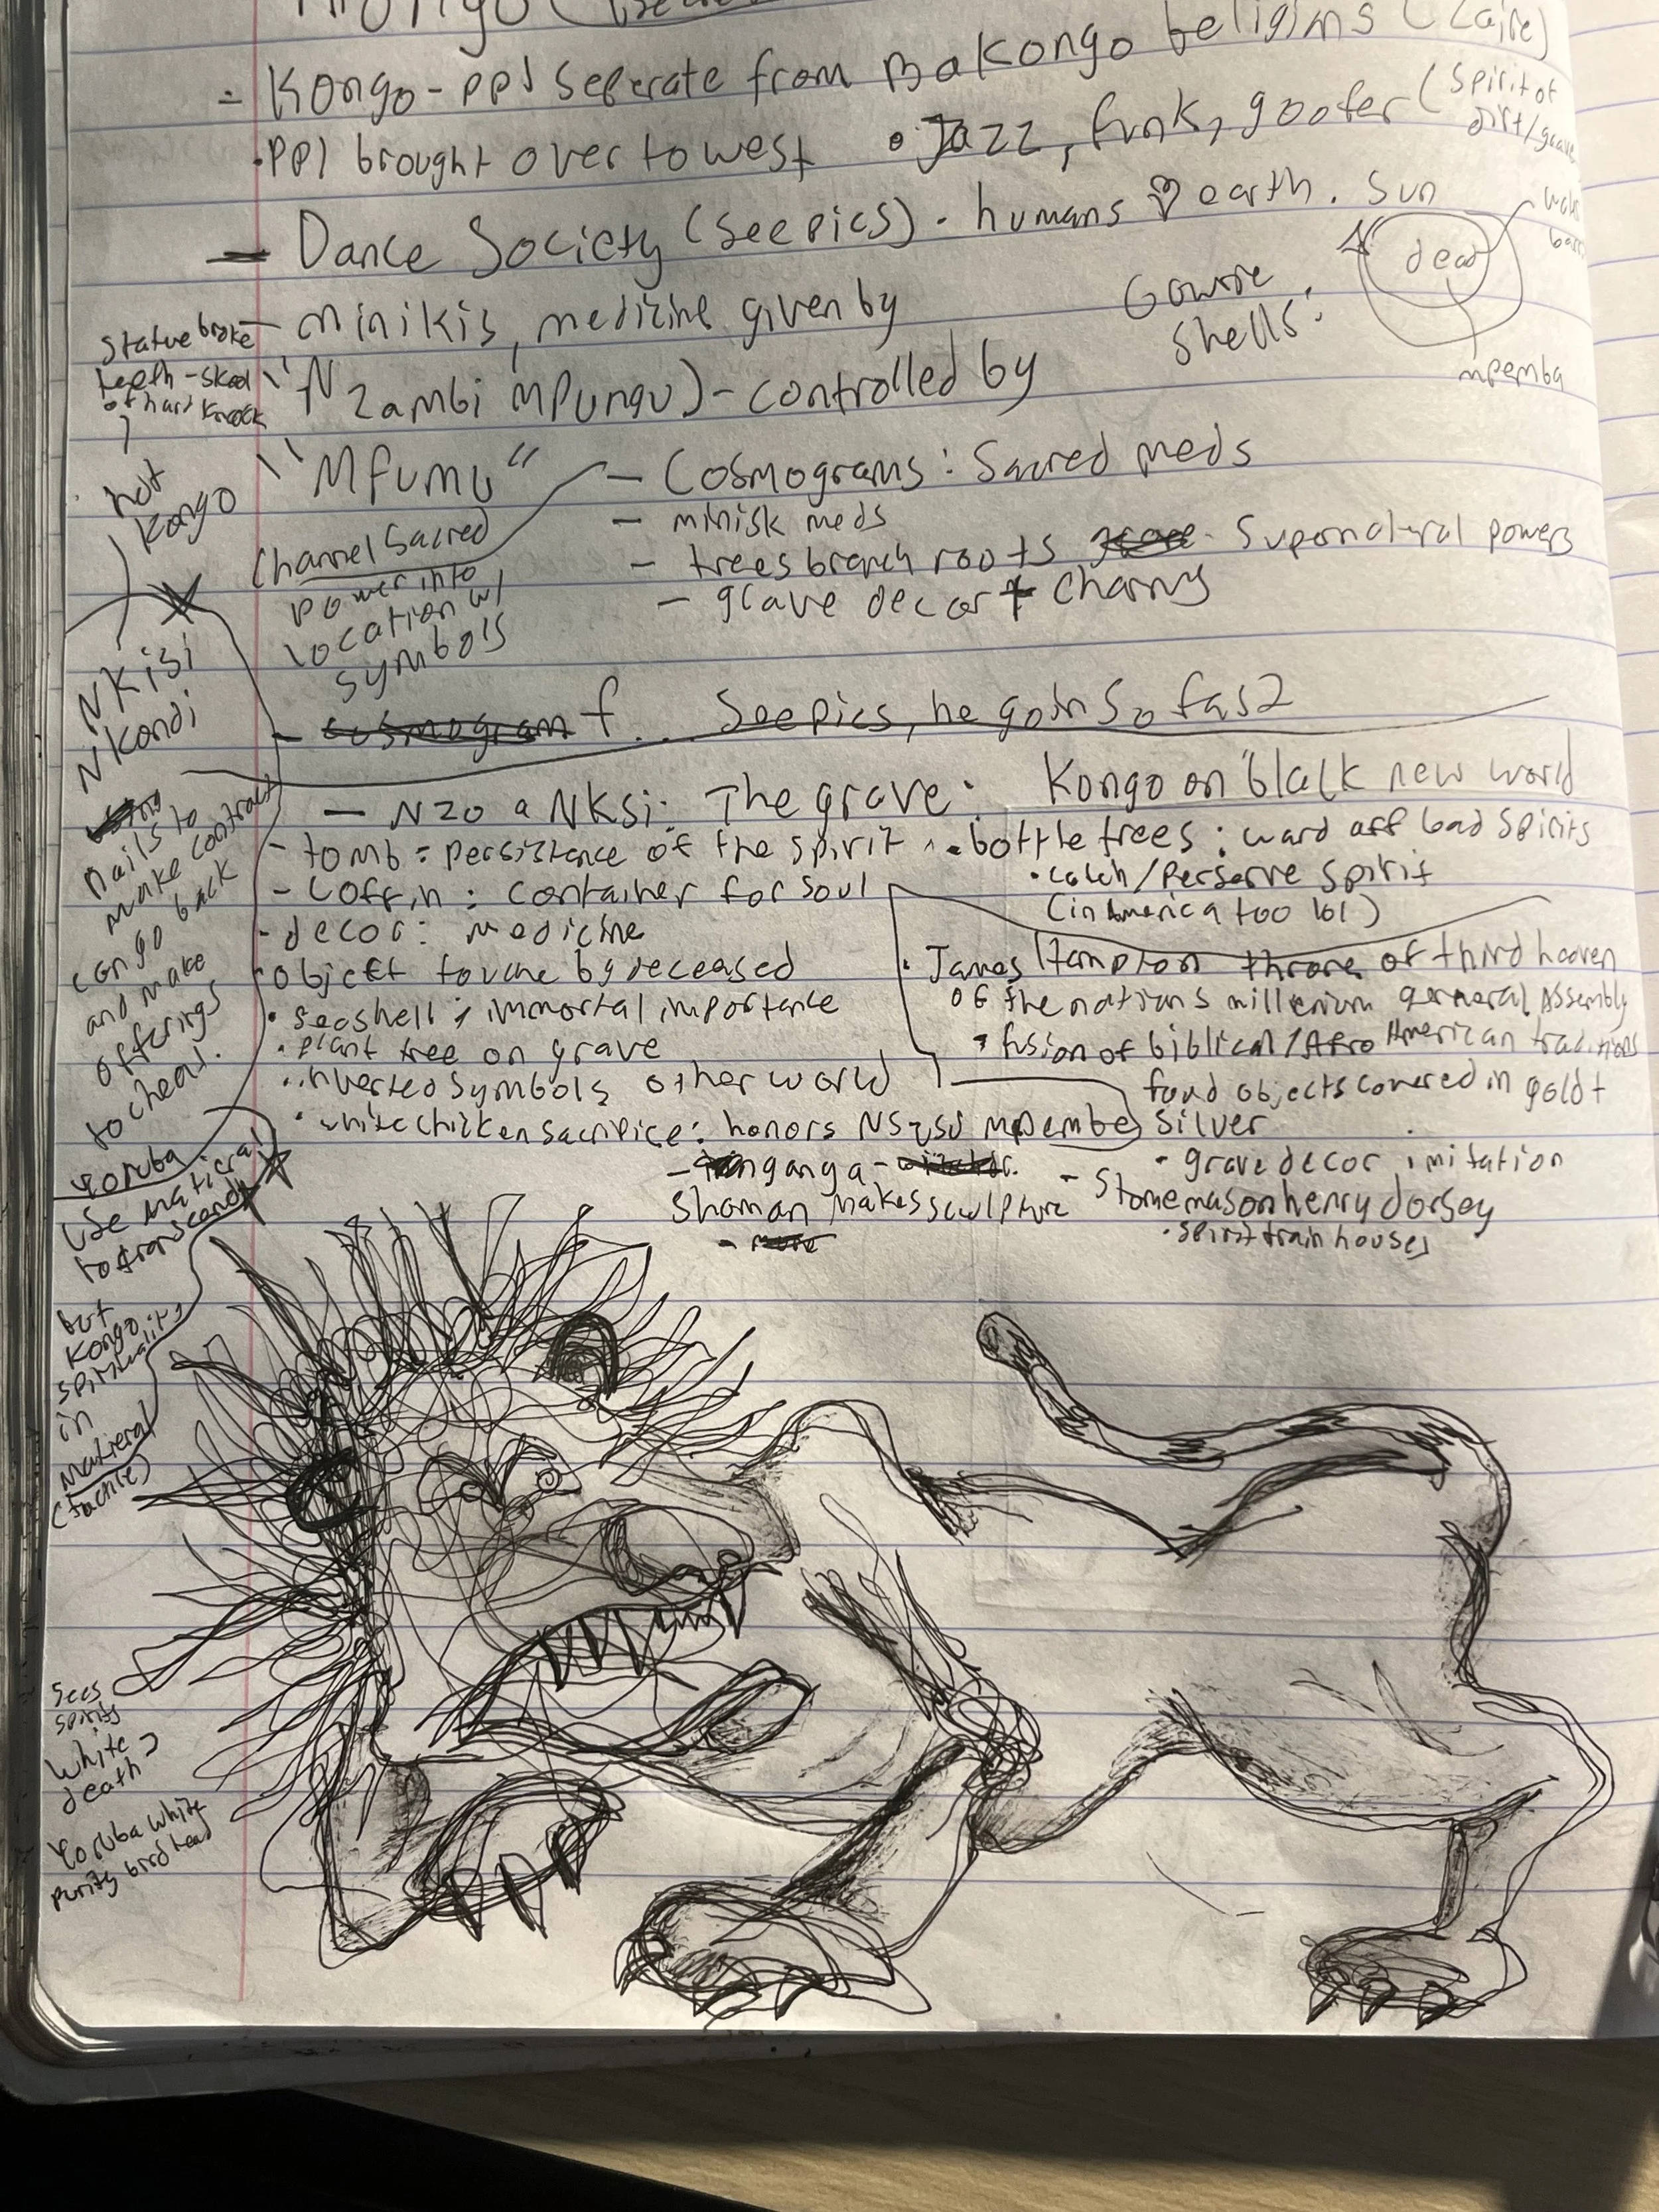 - Kongo - ppl seperate from Bakongo beligims (Zaire)
• ppl brought over to west • Jazz, funk, goofer (spirit of dirt/grave
- Dance Society (see pics) • humans ♡ earth. sun
dead
mpemba
Cowrie
shells!
- minikis, medizine given by
"Nzambi mpungu) - controlled by
"Mfumu"
Channel Sacred
power into
location w/
symbols
- Cosmograms: Sacred meds
- minisk meds
- trees branch roots - supernatural powers
- grave decor + charms
- cosmogram f... See pics, he goin so fas2
- Nzo a NKsi: The grave:
- tomb = persistance of the spirit
- Coffin: container for soul
- decor: medicine
object touche by deceased
• seashell; immortal importance
• plant tree on grave
• inverted symbols other world
• white chicken sacrifice: honors mpembe
- nganga -
Shaman makes sculpture
Kongo on black new world
• bottle trees: ward off bad spirits
• catch/perserve spirit
(in America too lol)
• James Hampton throne of third heaven
of the nations millenium general Assembly
• fusion of biblical/Afro American traditions
found objects covered in gold +
silver
• grave decor imitation
- Stonemason henry dorsey
• spirit train houses
Statue broke
teeth - skool
of hard knock
not
Kongo
NKisi
Nkondi
nails to
make contract
can go back
and make
offerings
to cheat.
Yoruba
use matieral
to transcend
but
Kongo
spirituality
in
Matieral
(tactile)
sees
spirits
white =
death
Yoruba white
purity bird head